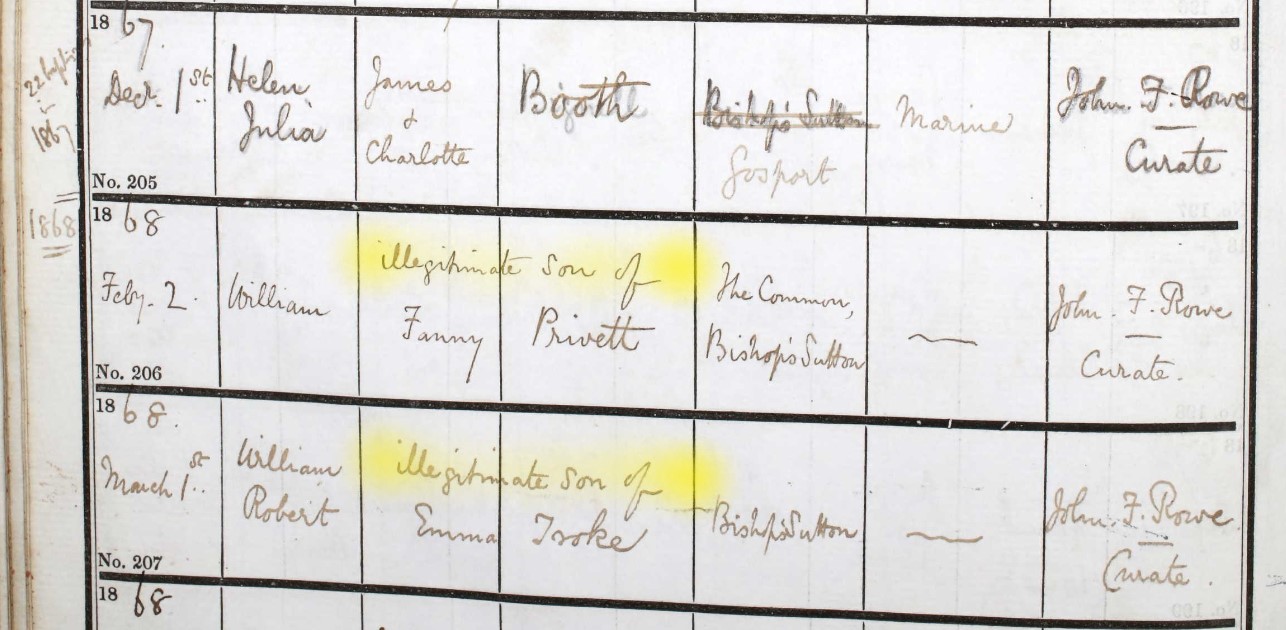 1867.
Decr. 1st
Helen
Julia
James
&
Charlotte
Booth
Bishop's Sutton
Gosport
Marine
John. F. Rowe
Curate
No. 205
22 baptisms
in
1867
1868
1868
Feby. 2.
William
illegitimate son of
Fanny
Privett
The Common,
Bishop's Sutton
John. F. Rowe
Curate.
No. 206
1868.
March 1st.
William
Robert
illegitimate son of
Emma
Bishop's Sutton
John. F. Rowe
Curate.
No. 207
1868